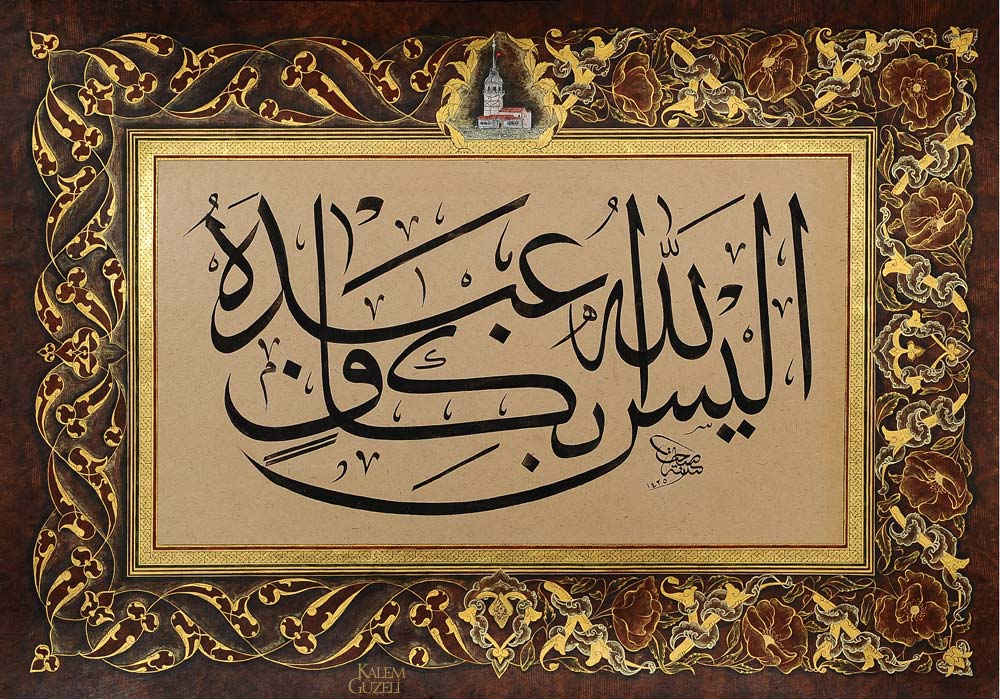 اَلَيْسَ اللّٰهُ بِكَافٍ عَبْدَهُ
١٤٢٥
KALEM
GÜZELİ